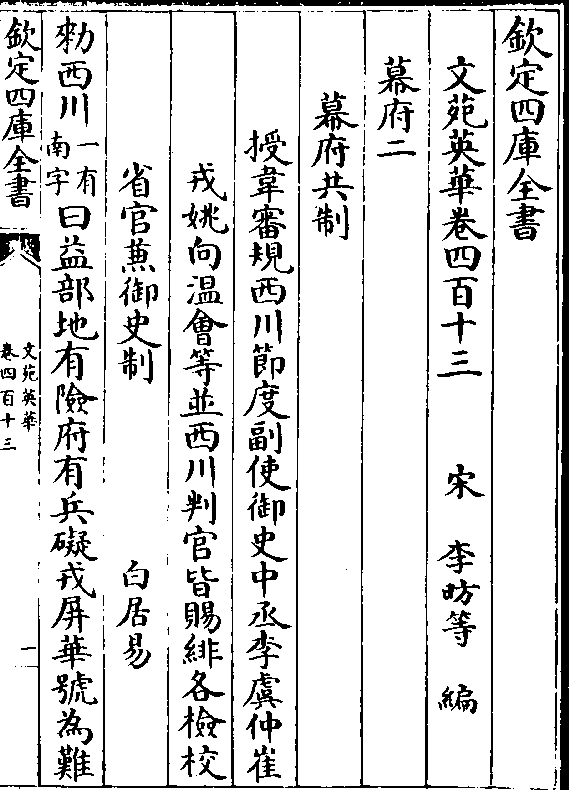 欽定四庫全書
文苑英華卷四百十三　宋　李昉等　編
幕府二
幕府共制
授韋審規西川節度副使御史中丞李虞仲崔
戎姚向溫會等並西川判官皆賜緋各檢校
省官兼御史制　白居易
勑西川一有南字曰益部地有險府有兵礙戎屏華號為難
欽定四庫全書
文苑英華
卷四百十三
一